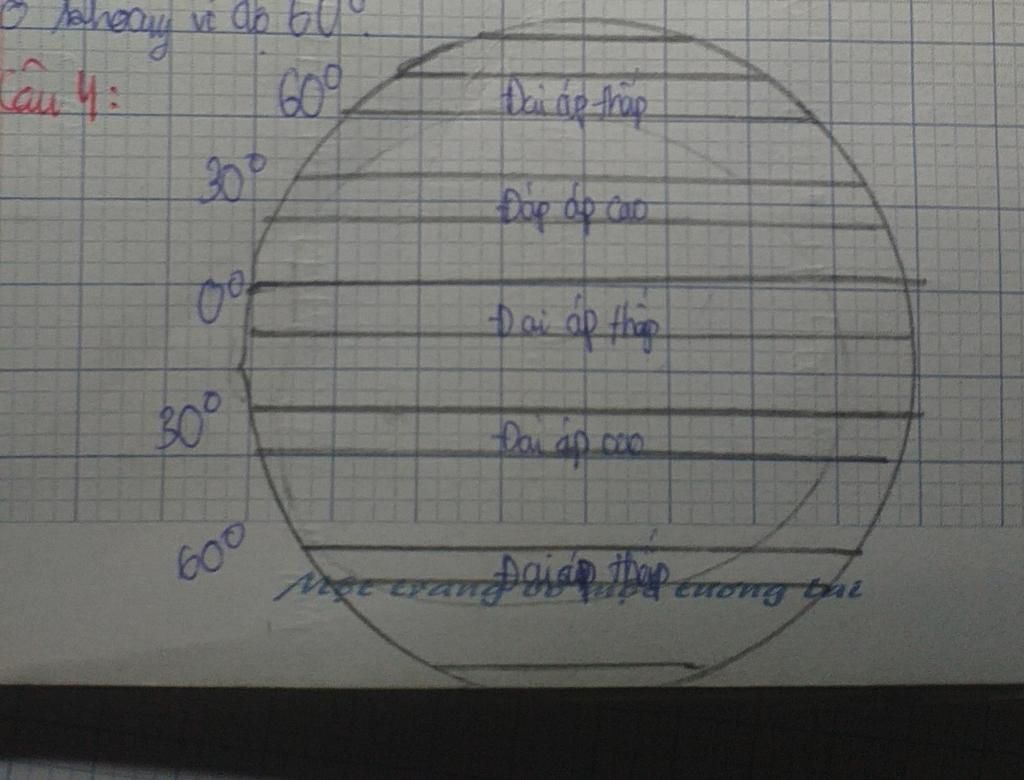 khoảng vĩ độ 60°.
Câu 4:
60° Đai áp thấp
30° Đáp áp cao
0° Đai áp thấp
30° Đai áp cao
60° Đai áp thấp
Một trang vở một tương lai